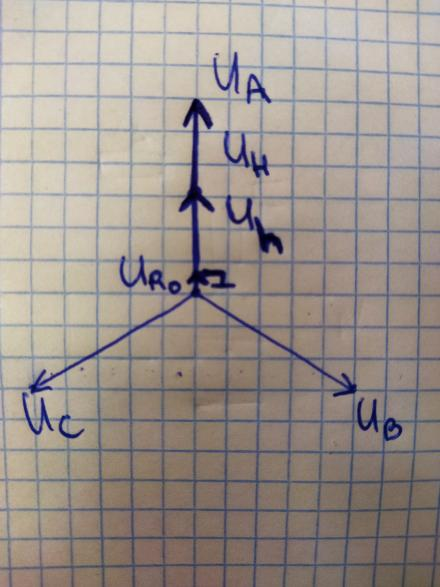 U_A
U_H
U_h
U_R₀ I
U_C
U_B